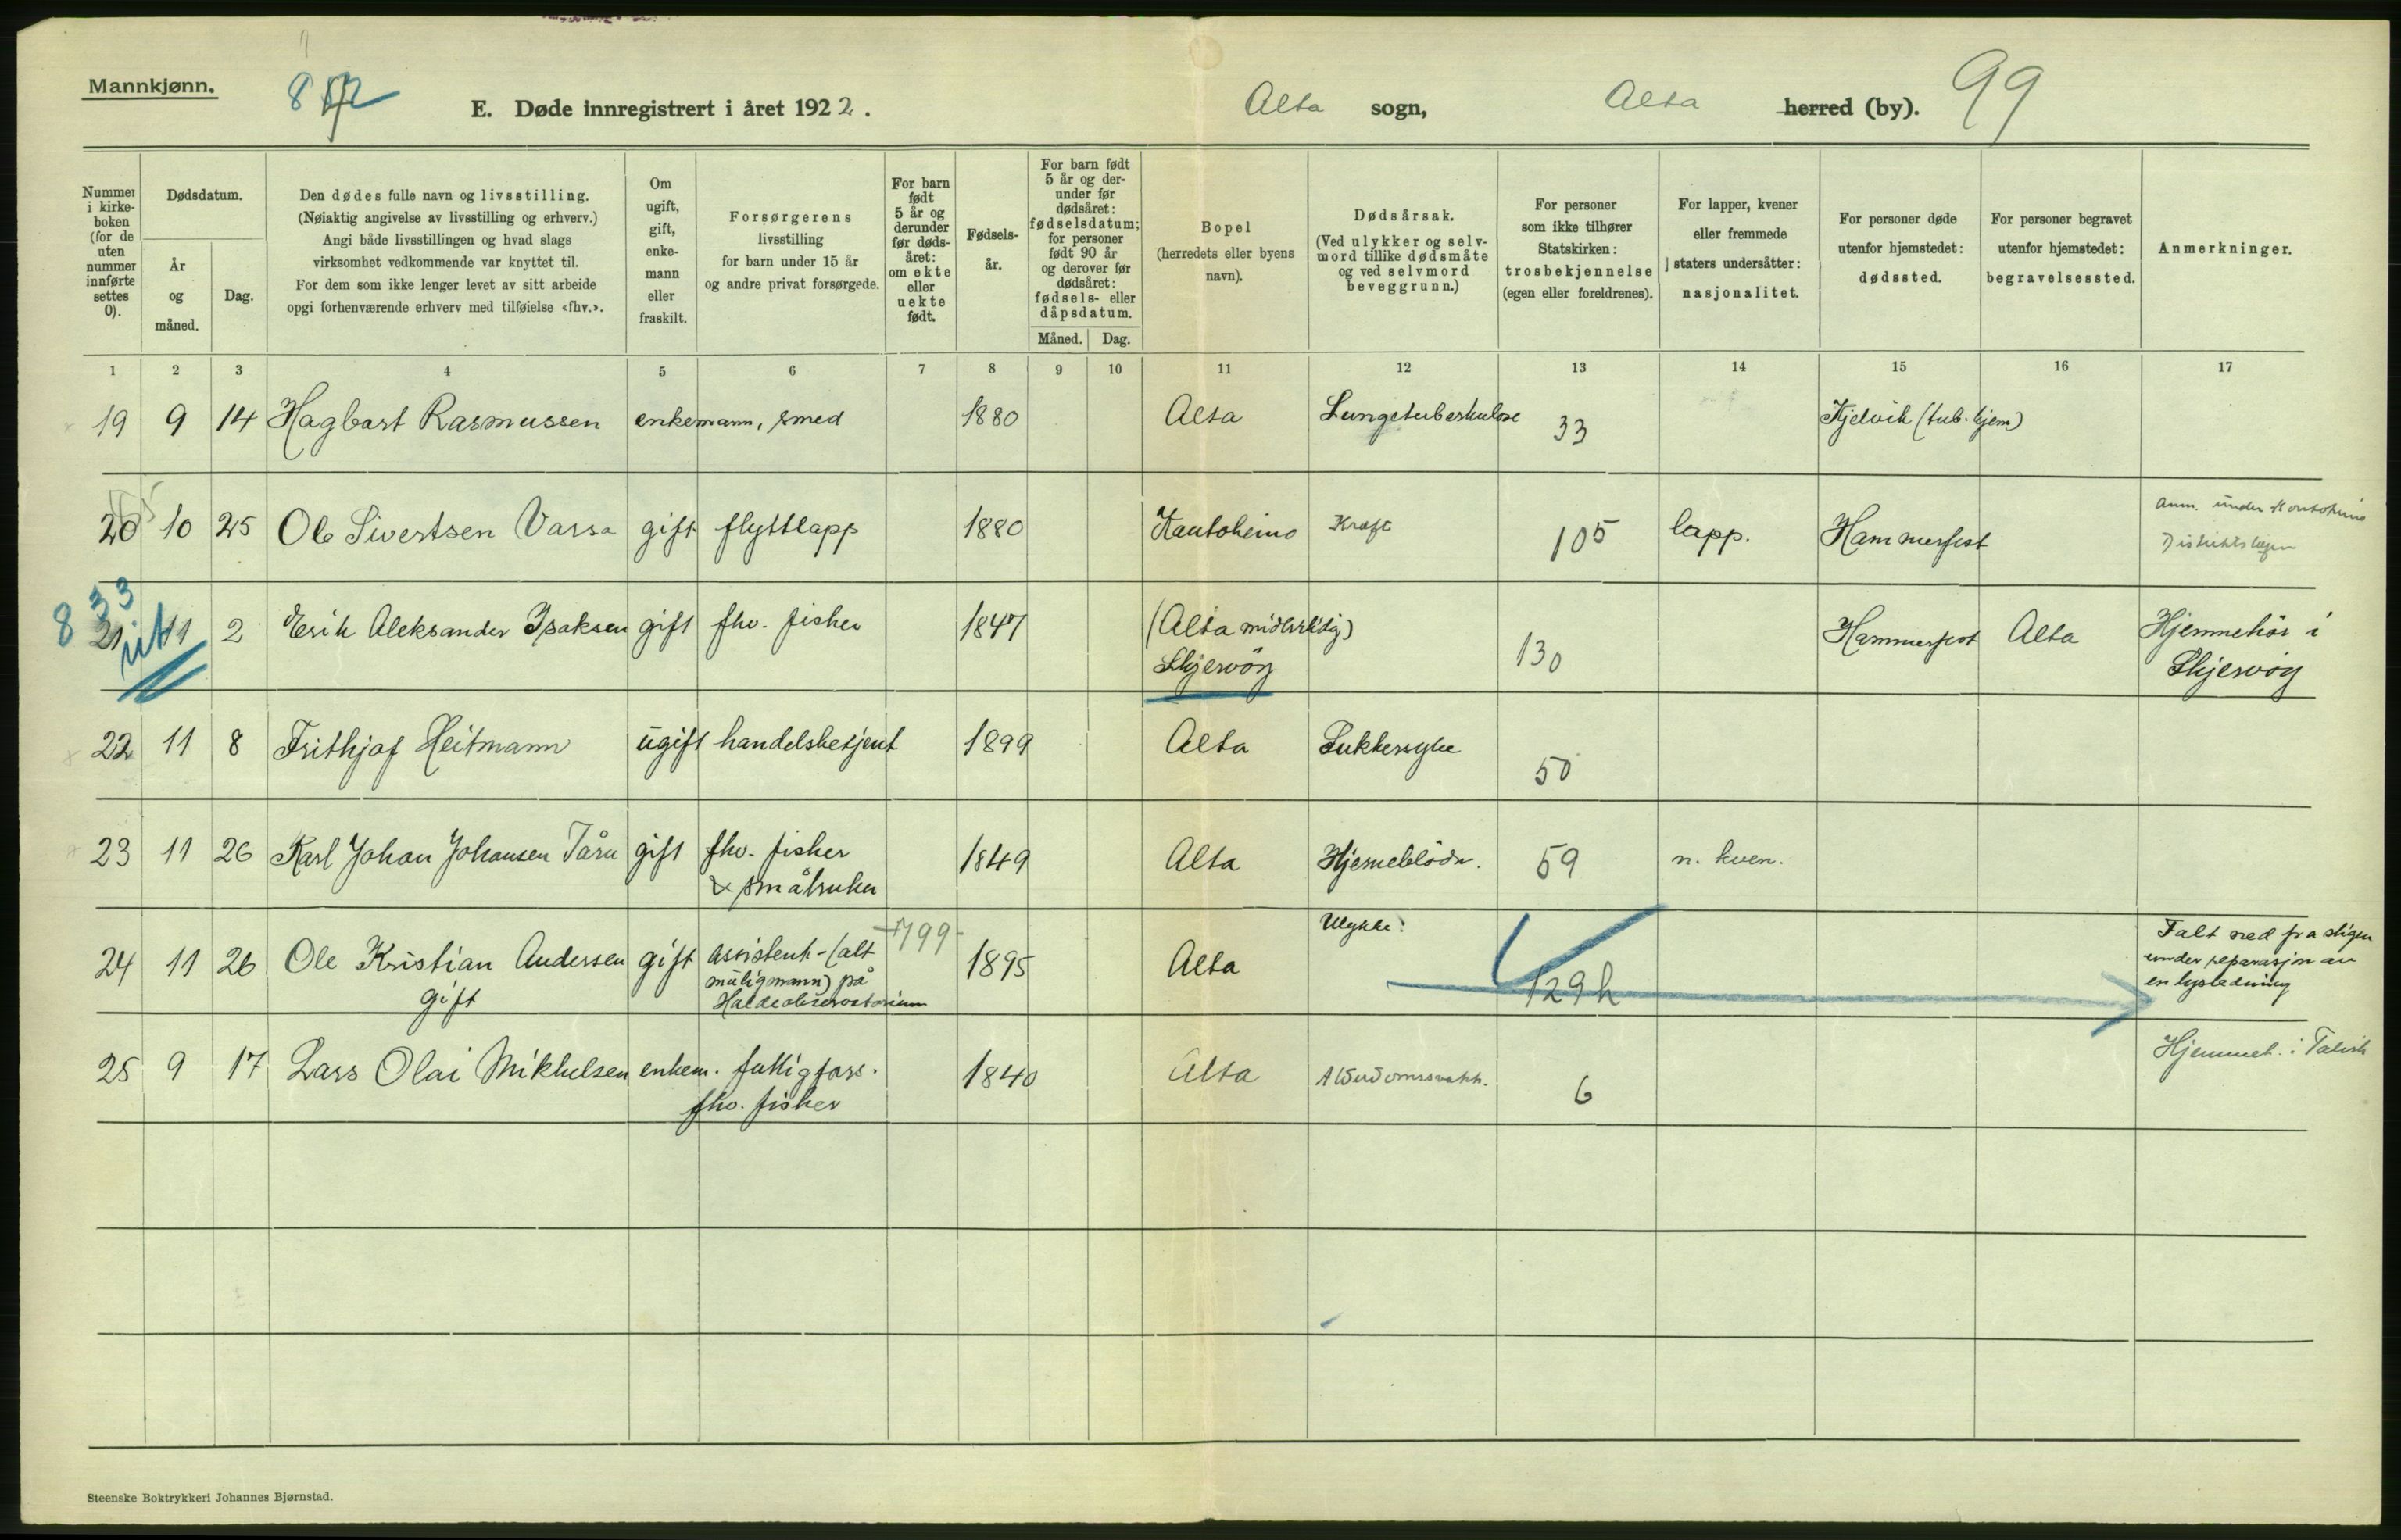 Mannkjønn.
E. Døde innregistrert i året 1922.
Alta sogn,
Alta herred (by).
99
Nummer i kirke- boken (for de uten nummer innførte settes 0).
Dødsdatum.
År og måned.
Dag.
Den dødes fulle navn og livsstilling.
(Nøiaktig angivelse av livsstilling og erhverv.)
Angi både livsstillingen og hvad slags
virksomhet vedkommende var knyttet til.
For dem som ikke lenger levet av sitt arbeide
opgi forhenværende erhverv med tilføielse «fhv.».
Om ugift, gift, enke- mann eller fraskilt.
Forsørgerens
livsstilling
for barn under 15 år
og andre privat forsørgede.
For barn født 5 år og derunder før døds- året: om ekte eller uekte født.
Fødsels- år.
For barn født 5 år og der- under før dødsåret: fødselsdatum; for personer født 90 år og derover før dødsåret: fødsels- eller dåpsdatum.
Måned. Dag.
Bopel
(herredets eller byens
navn).
Dødsårsak.
(Ved ulykker og selv-
mord tillike dødsmåte
og ved selvmord
beveggrunn.)
For personer
som ikke tilhører
Statskirken:
trosbekjennelse
(egen eller foreldrenes).
For lapper, kvener
eller fremmede
staters undersåtter:
nasjonalitet.
For personer døde
utenfor hjemstedet:
dødssted.
For personer begravet
utenfor hjemstedet:
begravelsessted.
Anmerkninger.
1 2 3 4 5 6 7 8 9 10 11 12 13 14 15 16 17
19 9 14 Hagbart Rasmussen enkemann, smed 1880 Alta Lungetuberkulose 33 Kjelvik (tub. hjem)
20 10 25 Ole Sivertsen Varsa gift flyttlapp 1880 Kautokeino Kræft 105 lapp. Hammerfest
Anm. under Kautokeino
Distriktslægen
833
21 11 2 Erik Aleksander Isaksen gift fhv. fisker 1847 (Alta midlertidig) 130 Hammerfest Alta Hjemmehör i
Skjervöy Skjervöy
22 11 8 Frithjof Heitmann ugift handelsbetjent 1899 Alta Sukkersyke 50
23 11 26 Karl Johan Johansen Tåru gift fhv. fisker 1849 Alta Hjerneblödn. 59 n. kven.
& småbruker
24 11 26 Ole Kristian Anderssen gift assistent-(alt 1895 Alta Ulykke: 129h Falt ned fra stigen
gift muligmann) på under reparasjon av
Haldeobservatorium en lysledning
25 9 17 Lars Olai Mikkelsen enkem. fattigfors. 1840 Alta Alderdomssvakh. 6 Hjemmeh. i Talvik
fhv. fisker
Steenske Boktrykkeri Johannes Bjørnstad.